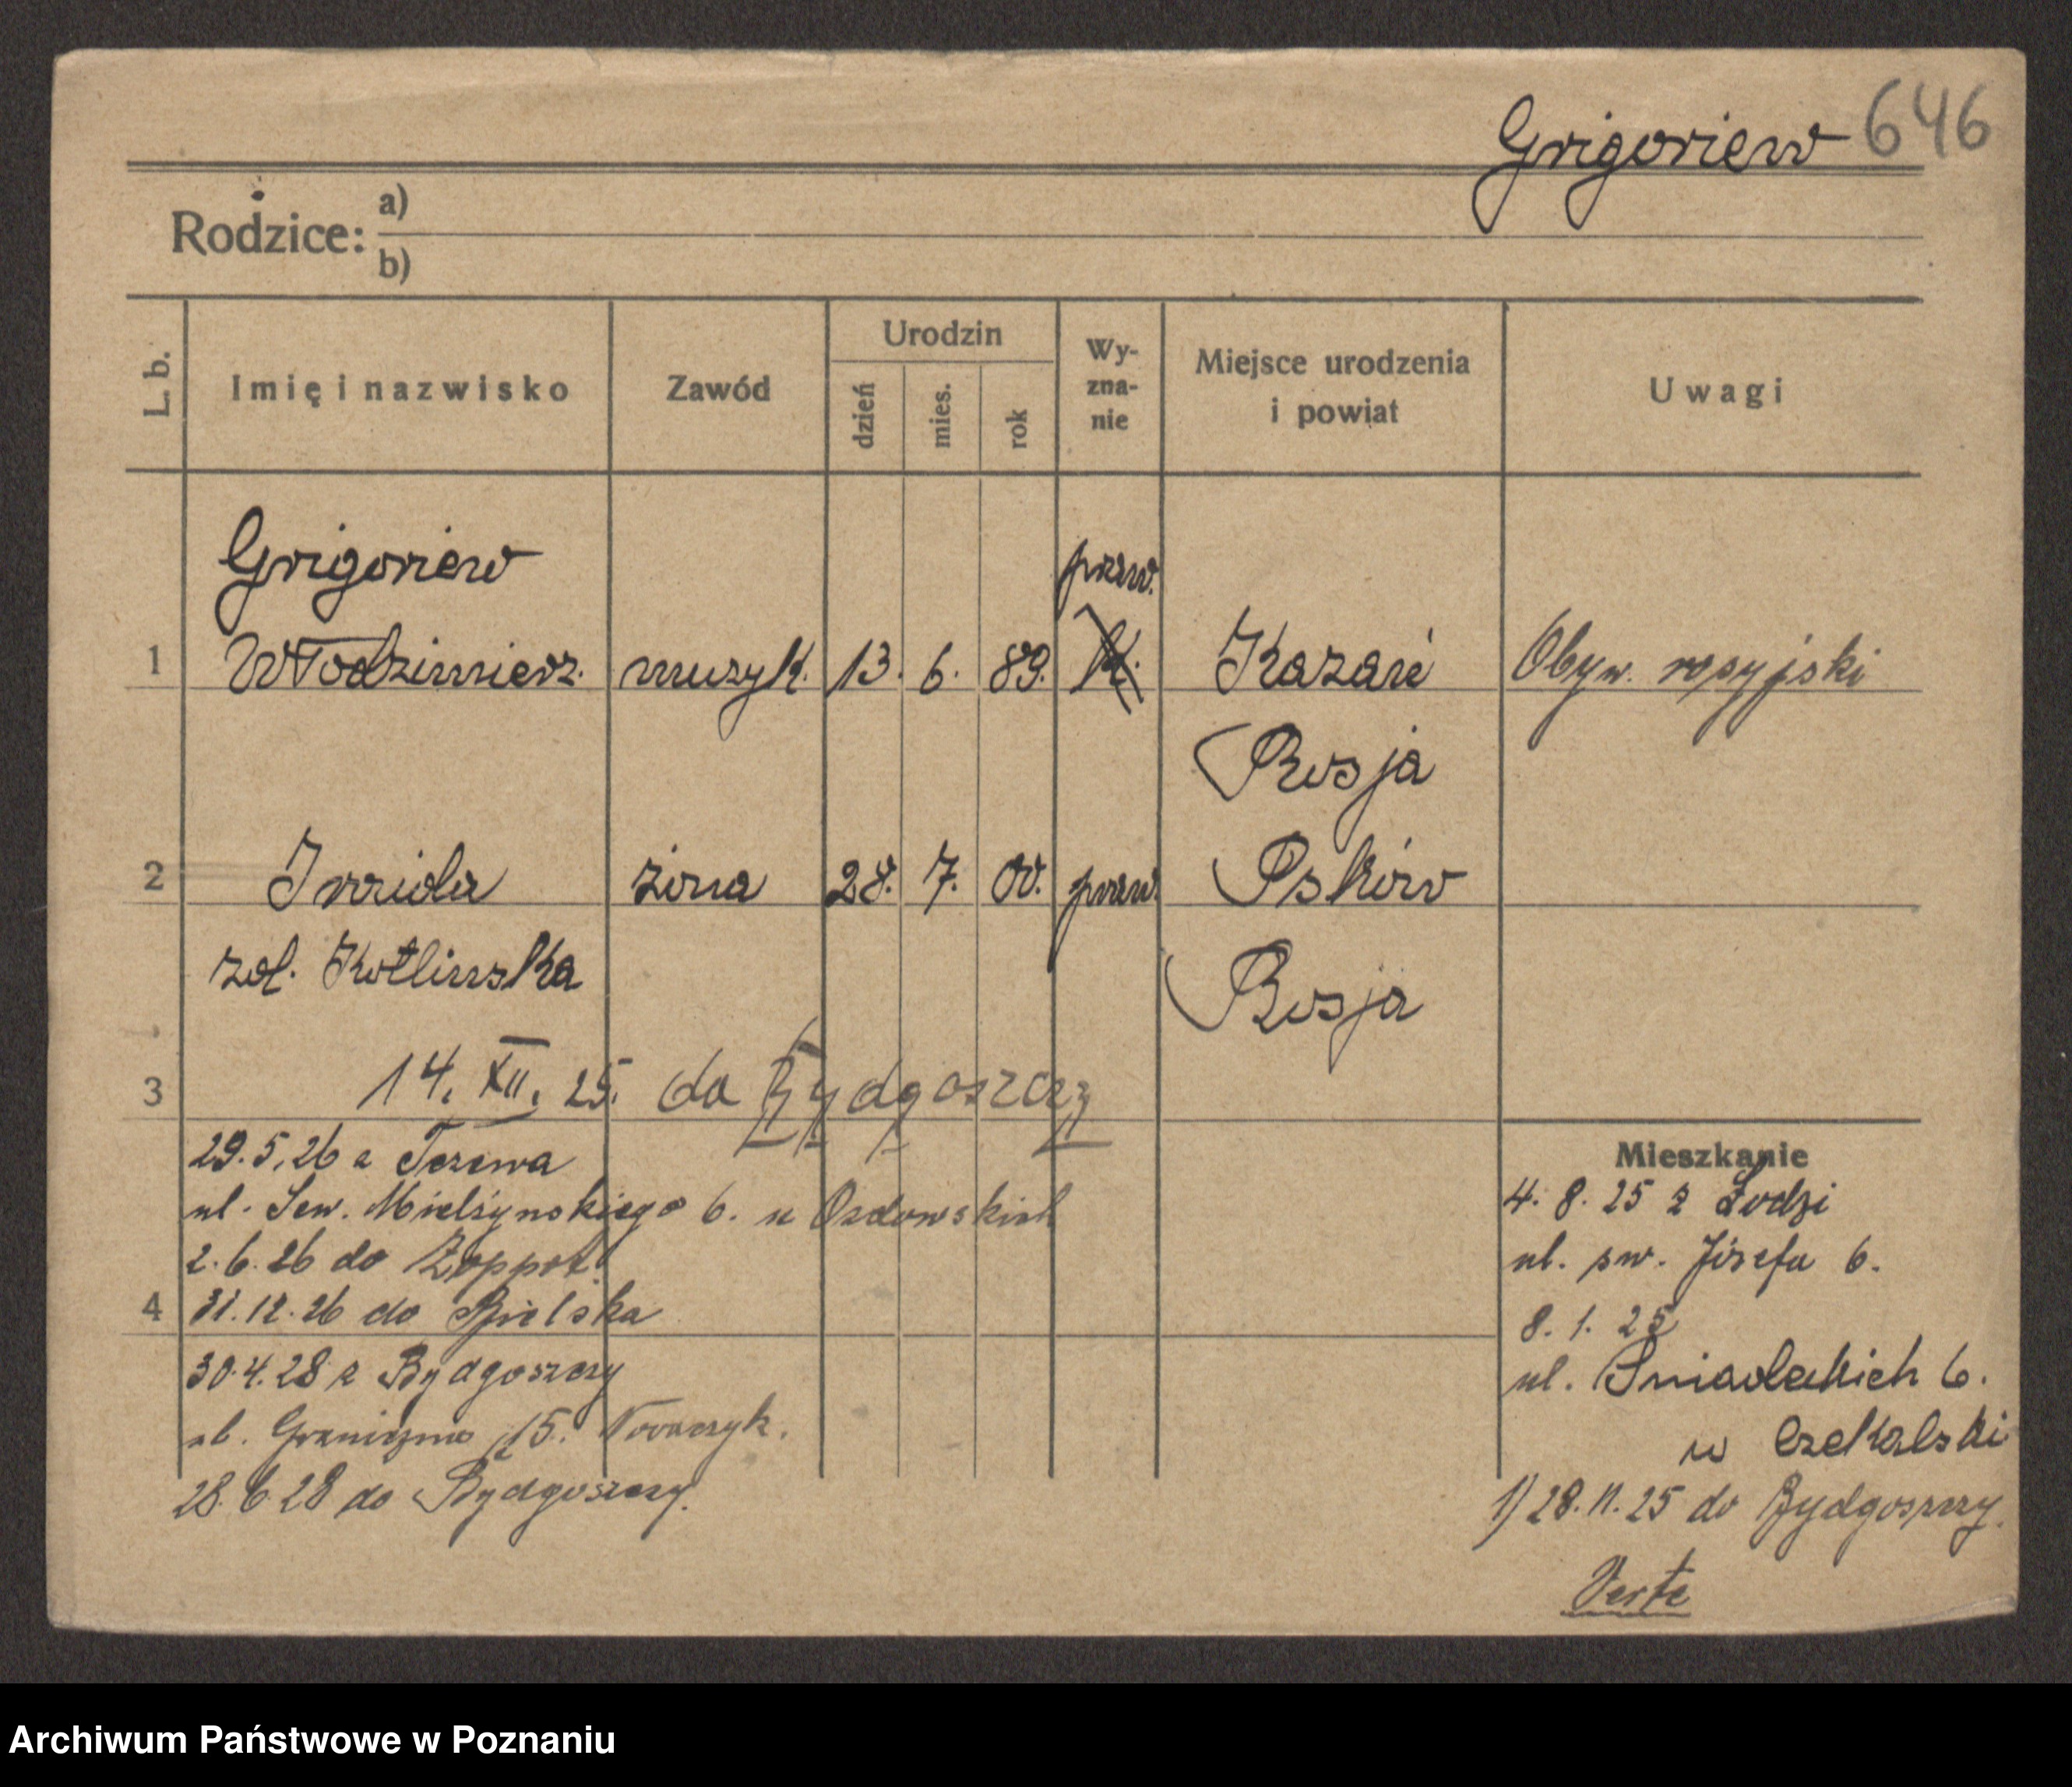 Grigoriew 646
Rodzice: a)
b)
L. b. Imię i nazwisko Zawód Urodzin dzień mies. rok Wy-zna-nie Miejsce urodzenia i powiat Uwagi
Grigoriew praw.
1 Włodzimierz. muzyk. 13. 6. 89. K. Kazań Obyw. rosyjski
Rosja
2 żona 28. 7. 00. praw. Psków
zol. Kotlinska Rosja
3 14. XII. 25. do Bydgoszczy
29.5.26 z Tczewa
ul. Sew. Mielżynskiego 6. u
2.6.26 do Zoppot.
4 31.12.26 do Bielska
30.4.28 z Bydgoszczy
ul. Graniczna 15. Nowaczyk.
28.6.28 do Bydgoszczy.
Mieszkanie
4. 8. 25 z Łodzi
ul. sw. Józefa 6.
8. 1. 25
ul. Sniadeckich 6.
u Czekalski
1) 28.11.25 do Bydgoszczy.
Verte
Archiwum Państwowe w Poznaniu